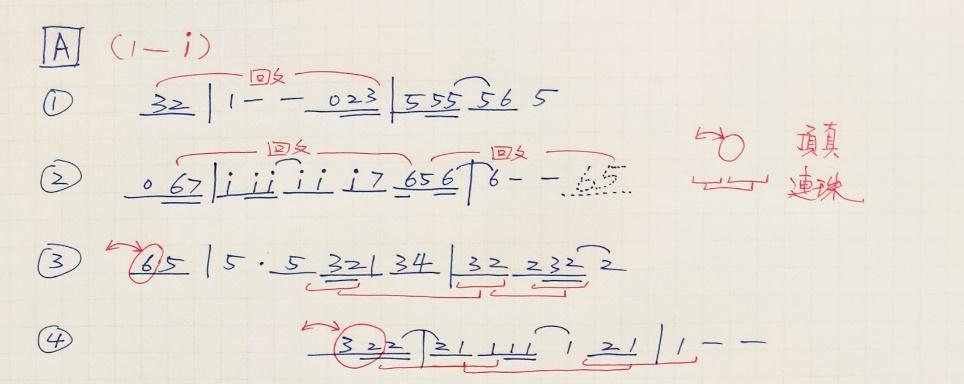 A (1-i)
回文
① 32 | 1 - - 023 | 555 56 5
回文 回文
② 0 67 | i i i i i i 7 656 | 6 - - 65
頂真
連珠
③ 65 | 5 · 5 321 34 | 32 232 2
④ 322 | 21 111 1 21 | 1 - -